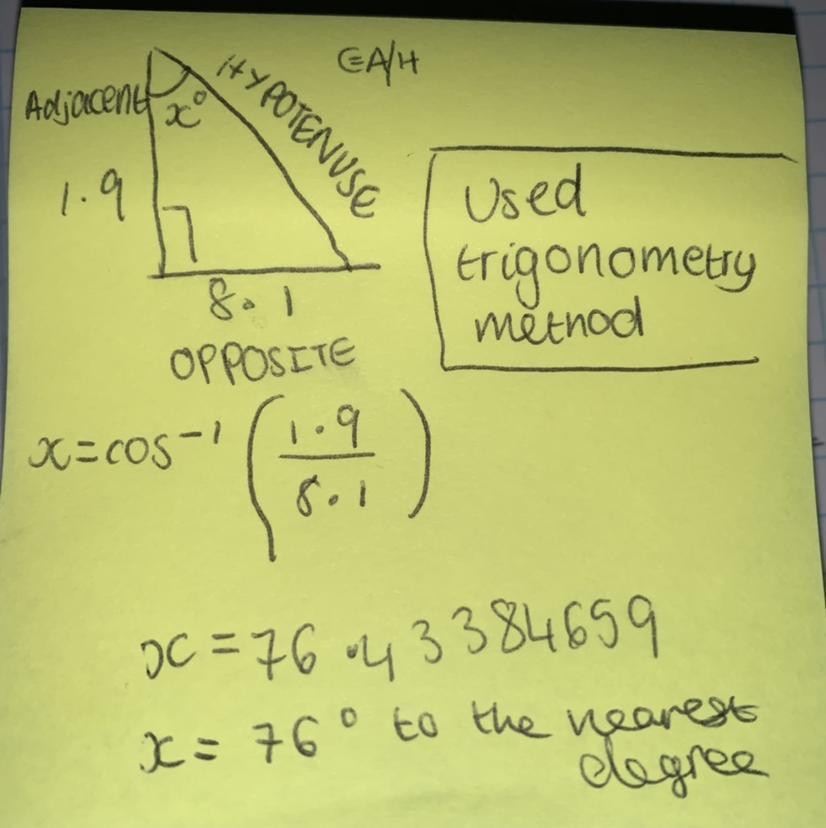 CA/H
HYPOTENUSE
Adjacent
x°
1.9
8.1
OPPOSITE
Used
trigonometry
method
x=cos⁻¹ (1.9/8.1)
x=76.43384659
x=76° to the nearest
degree